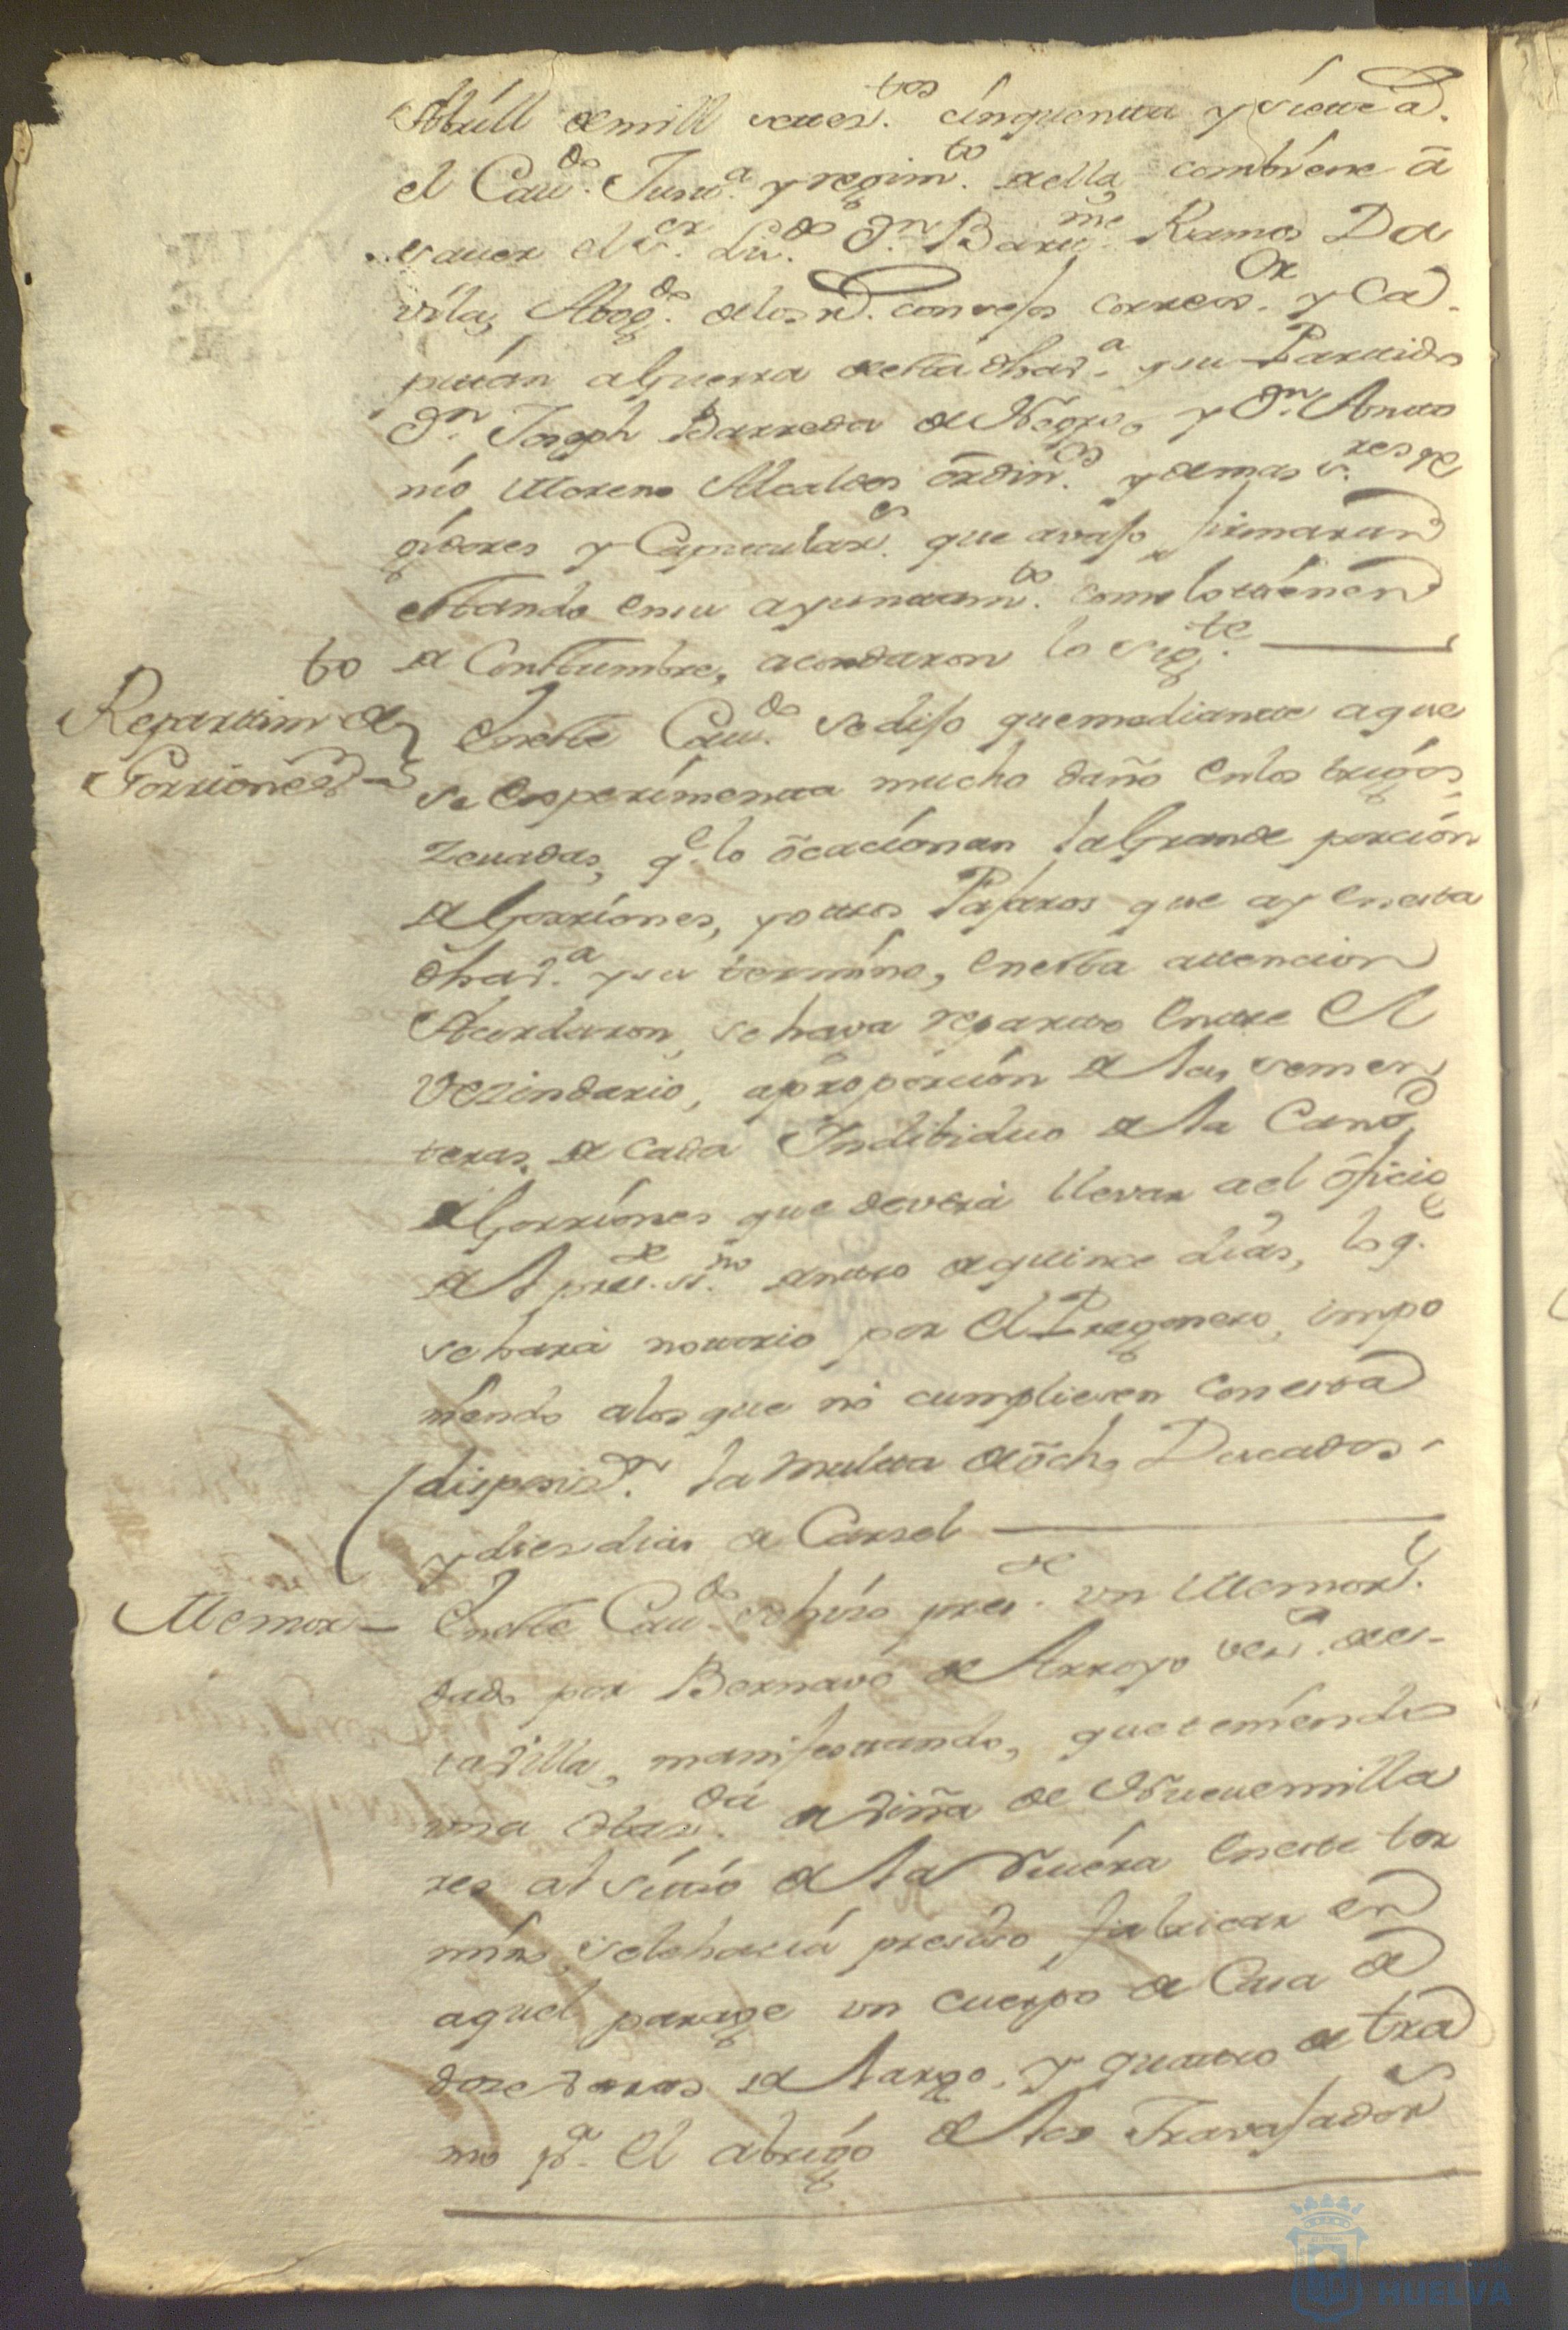 Abrill de mill setes.tos cinquenta y siete a.
el Cau.do Just.a y regim.to della combiene â
sauer el s.or Lic.do D.n Bart.me Ramos Da
vila, Abog.do de los r.s consejos corregi.or y Ca
pitan a Guerra desta dha v.a y su Partido
D.n Joseph Barreda de Negro, y D.n Anto
nio Moreno Alcaldes ordin.os y demas s.res Re
gidores y Capitulares que avajo firmaran
estando en su ayuntam.to como lo tienen
de Costumbre, acordaron lo sig.te
Repartim.to de
Gorriones
En este Cau.do se dijo que mediante a que
se esperimenta mucho daño en los trigos,
zeuadas, q.e lo ôcacionan la Grande porcion
de Gorriones, y otros Pajaros que ay en esta
dha v.a y su termino, en esta attencion
Acordaron, se haga reparto entre el
Vezindario, a proporcion de las semen
teras de cada Indibiduo de la Cant.d
de Gorriones que deverá llevar a el ôficio
del pres.te ss.no dentro de quince dias, lo q.e
se hará notorio por el Pregonero, impo
niendo a los que nó cumpliesen con esta
disposiz.n la multa de ôcho Ducados
y dies dias de Carsel
Memor.
En este Cau.do se hizo pres.te un Memor.l
dado por Bernavé de Arroyo vez.o de es
ta Villa, manifestando, que teniendo
una Haz.da de Viña de Nueue milla
res al sitio de la Riuéra en este ter
mino, se le hacia presiso fabricar en
aquel parage un cuerpo de Casa de
doze varas de largo, y quatro de tra
mo p.a el abrigo de los Travajadores
HUELVA